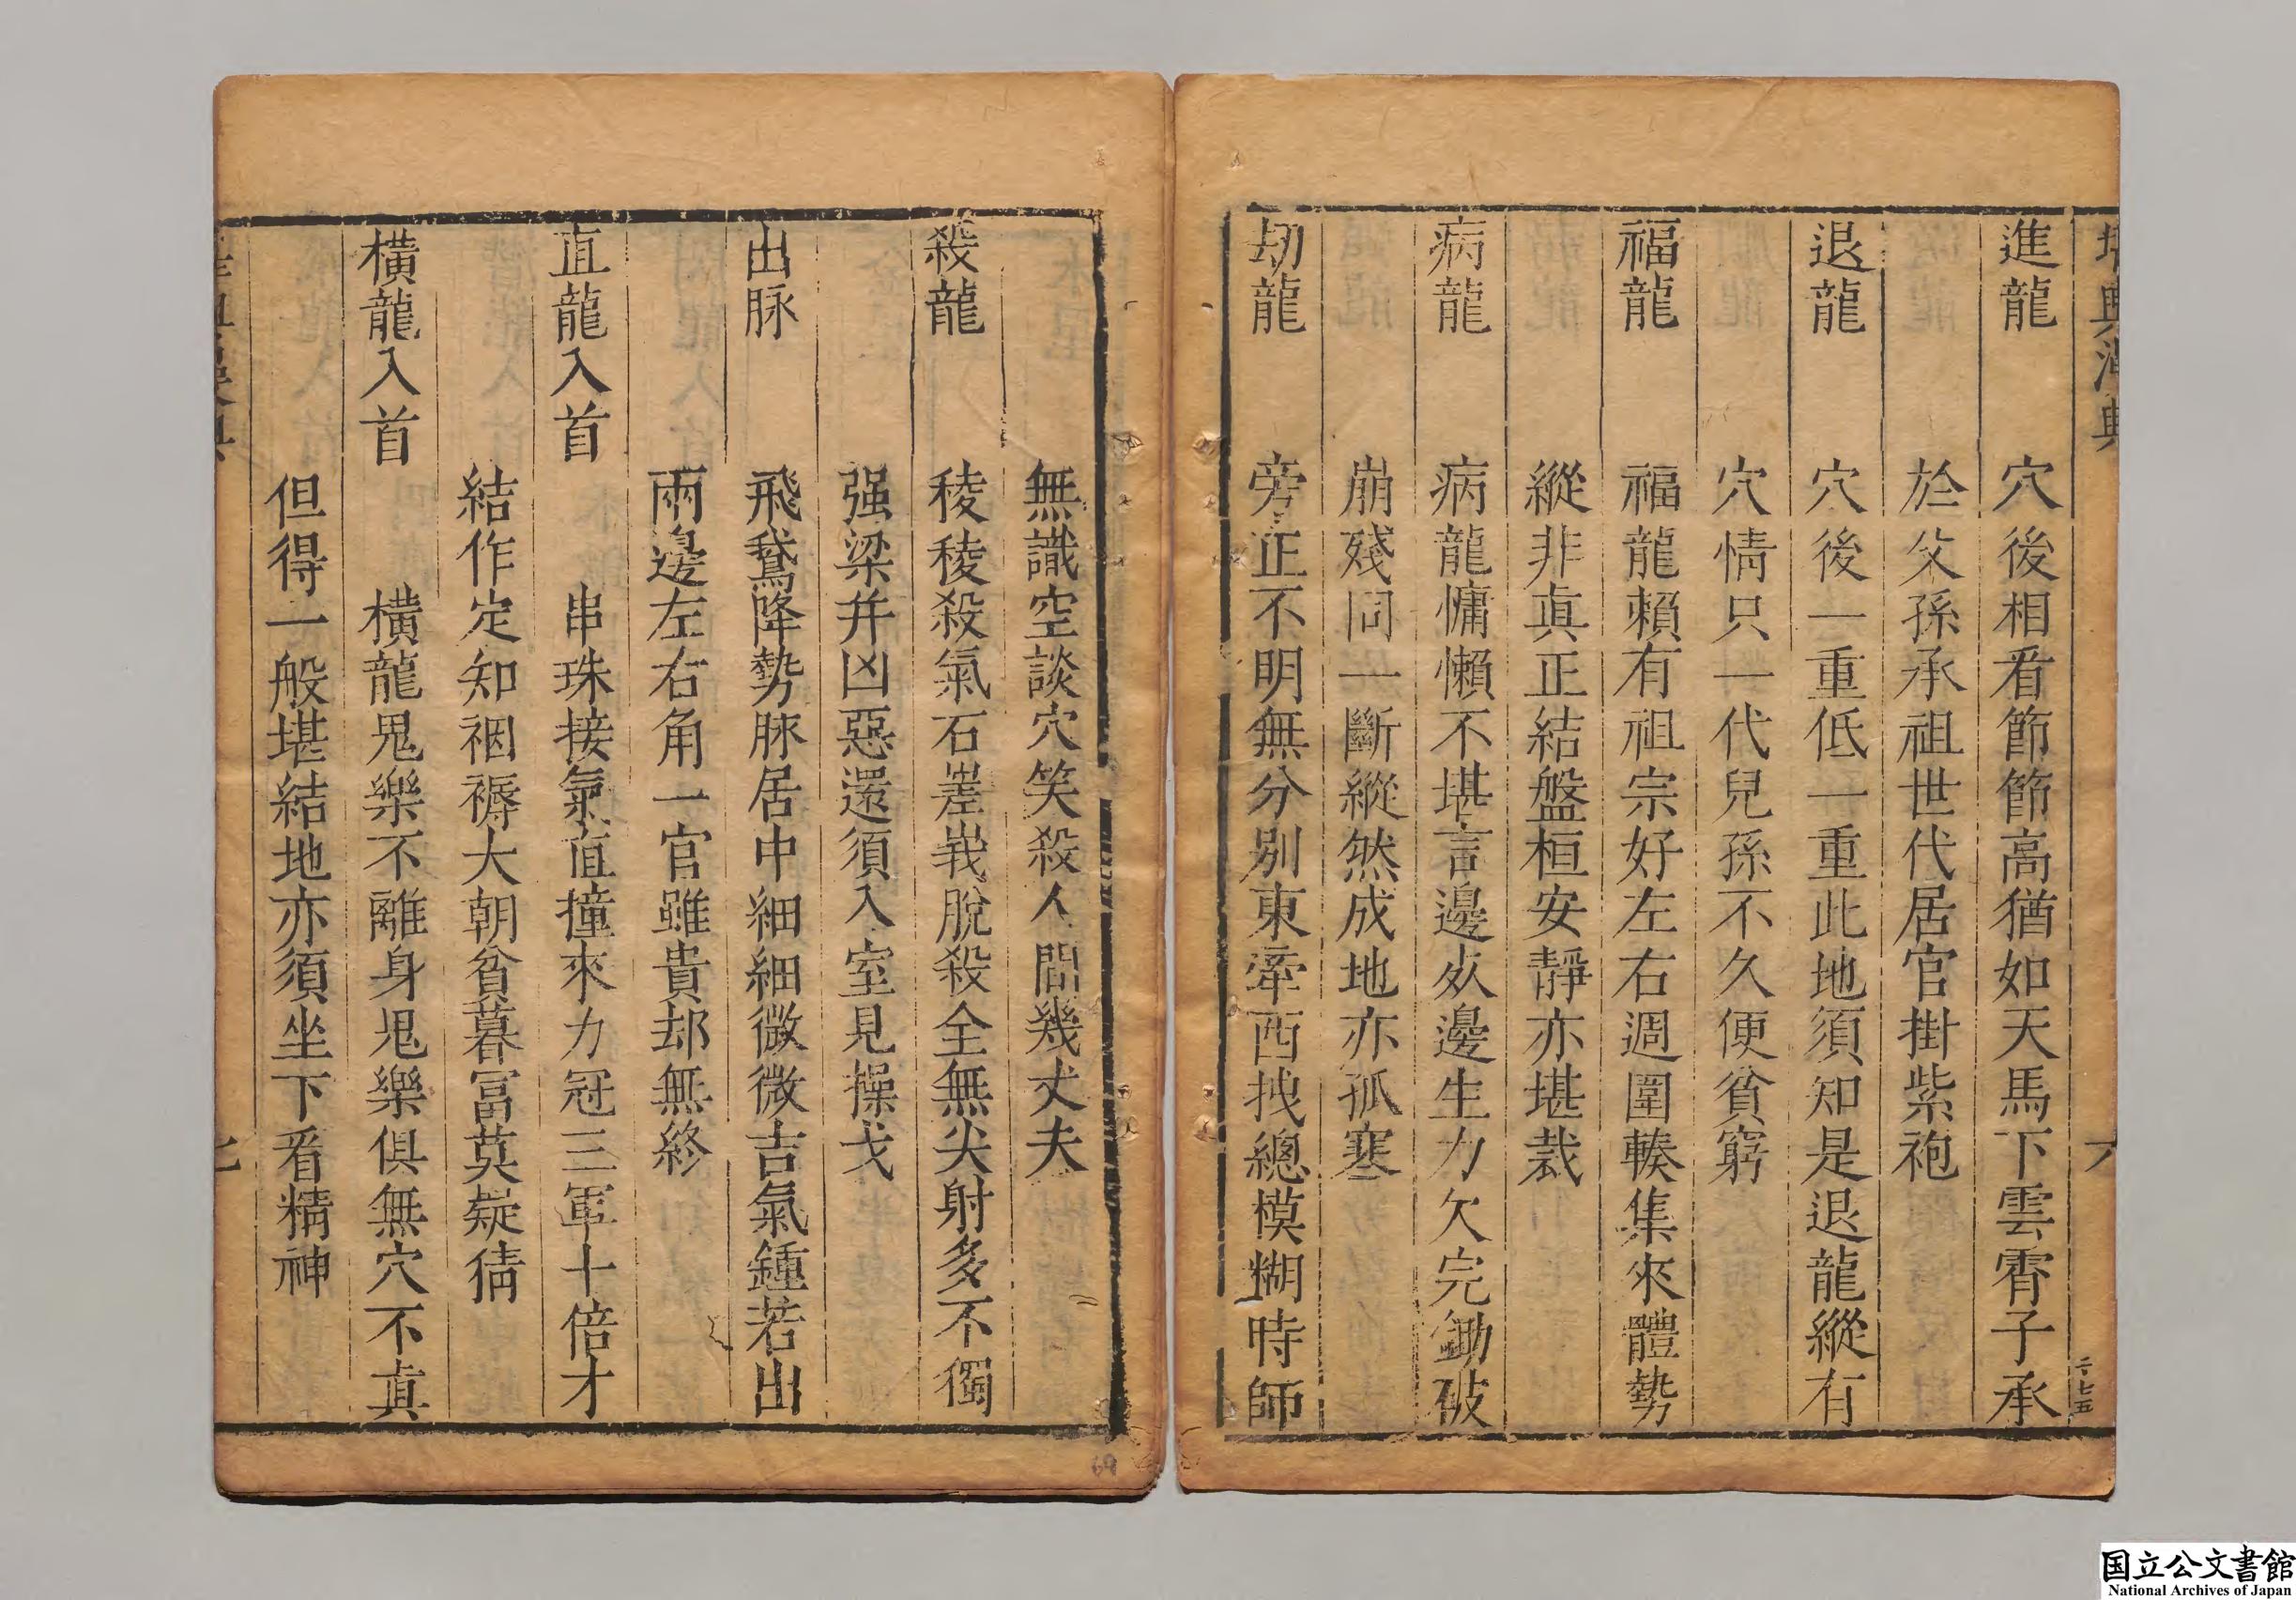 進龍　穴後相看節節高猶如天馬下雲霄子承
於父孫承祖世代居官掛紫袍
退龍　穴後一重低一重此地須知是退龍縱有
穴情只一代兒孫不久便貧窮
福龍　福龍賴有祖宗好左右週圍輳集來體勢
縱非眞正結盤桓安靜亦堪裁
病龍　病龍慵懶不堪言邊死邊生力欠完鋤破
崩殘同一斷縱然成地亦孤寒
刧龍　旁正不明無分別東牽西拽總模糊時師
六
二七五
無識空談穴笑殺人間幾丈夫
殺龍　稜稜殺氣石嵳峩脫殺全無尖射多不獨
强梁幷凶惡還須入室見操戈
出脉　飛鵞降勢脉居中細細微微吉氣鍾若出
兩邊左右角一官雖貴却無終
直龍入首　串珠接氣直撞來力冠三軍十倍才
結作定知裀褥大朝貧暮冨莫疑猜
橫龍入首　橫龍鬼樂不離身鬼樂俱無穴不眞
但得一般堪結地亦須坐下看精神
69
国立公文書館
National Archives of Japan